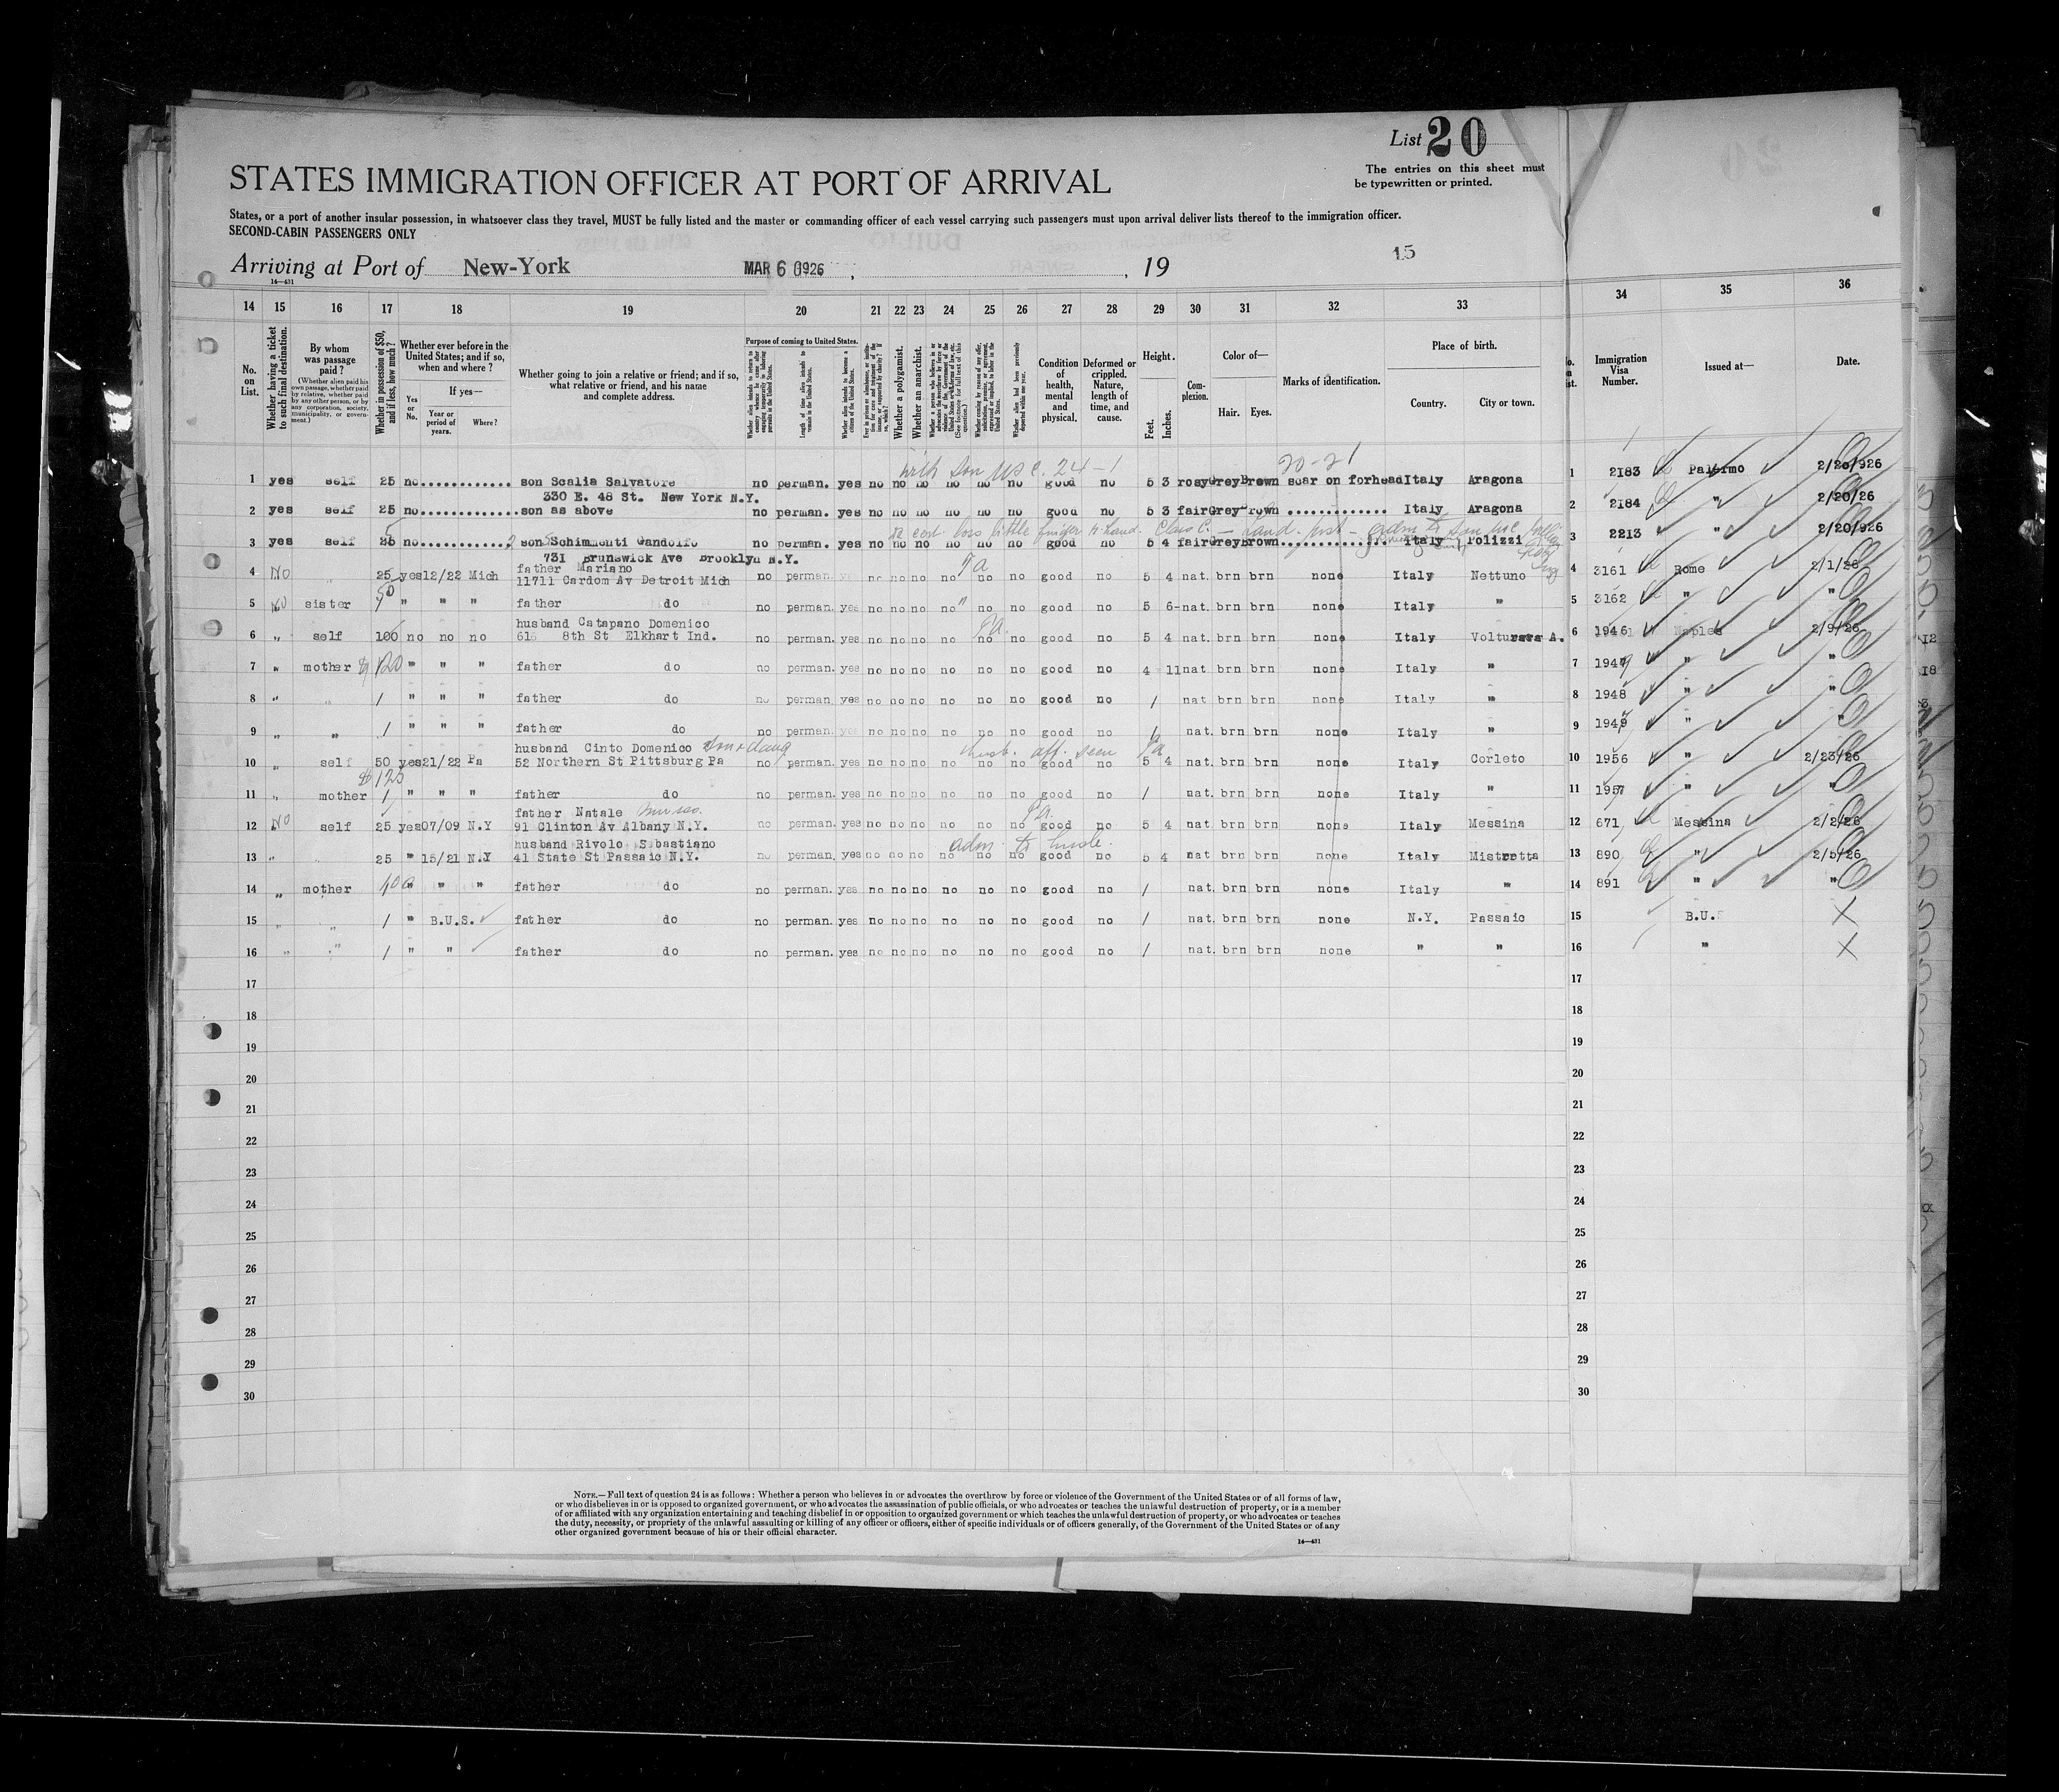 List 20
The entries on this sheet must
be typewritten or printed.
STATES IMMIGRATION OFFICER AT PORT OF ARRIVAL
States, or a port of another insular possession, in whatsoever class they travel, MUST be fully listed and the master or commanding officer of each vessel carrying such passengers must upon arrival deliver lists thereof to the immigration officer.
SECOND-CABIN PASSENGERS ONLY
15
Arriving at Port of New-York MAR 6 1926 , 19
14—431
14 15 16 17 18 19 20 21 22 23 24 25 26 27 28 29 30 31 32 33 34 35 36
No. on List.
Whether having a ticket to such final destination.
By whom was passage paid?
(Whether alien paid his own passage, whether paid by relative, whether paid by any other person, or by any corporation, society, municipality, or government.)
Whether in possession of $50, and if less, how much?
Whether ever before in the United States; and if so, when and where?
If yes—
Yes or No.
Year or period of years.
Where?
Whether going to join a relative or friend; and if so, what relative or friend, and his name and complete address.
Purpose of coming to United States.
Length of time alien intends to remain in the United States.
Whether alien intends to become a citizen of the United States.
Whether a polygamist.
Whether an anarchist.
Condition of health, mental and physical.
Deformed or crippled. Nature, length of time, and cause.
Height.
Feet.
Inches.
Complexion.
Color of—
Hair. Eyes.
Marks of identification.
Place of birth.
Country. City or town.
No. on List.
Immigration Visa Number.
Issued at—
Date.
with son USC. 24-1 20-21
1 yes self 25 no............ son Scalia Salvatore no perman. yes no no no no no no good no 5 3 rosy Grey Brown scar on forhead Italy Aragona 1 2183 Palermo 2/20/926
330 E. 48 St. New York N.Y.
2 yes self 25 no............ son as above no perman. yes no no no no no no good no 5 3 fair Grey rown ............. Italy Aragona 2 2184 " 2/20/26
loss little finger r hand. Class C.
3 yes self 25 no........... son Schimmenti Gandolfo no perman. yes no no no no no no good no 5 4 fair Grey Brown ............. Italy Polizzi 3 2213 " 2/20/926
731 Brunswick Ave Brooklyn N.Y.
father Mariano
4 No 25 yes 12/22 Mich 11711 Cardom Av Detroit Mich no perman. yes no no no no no no good no 5 4 nat. brn brn none Italy Nettuno 4 3161 Rome 2/1/26
5 No sister " " " father do no perman. yes no no no no no no good no 5 6 nat. brn brn none Italy " 5 3162 " "
husband Catapano Domenico
6 " self 100 no no no 616 8th St Elkhart Ind. no perman. yes no no no no no no good no 5 4 nat. brn brn none Italy Volturara A. 6 1946 Naples 2/9/26
7 " mother $120 " " " father do no perman. yes no no no no no no good no 4 11 nat brn brn none Italy " 7 1947 " "
8 " " / " " " father do no perman. yes no no no no no no good no / nat brn brn none Italy " 8 1948 " "
9 " " / " " " father do no perman. yes no no no no no no good no / nat. brn brn none Italy " 9 1949 " "
husband Cinto Domenico husb. aff. seen
10 " self 50 yes 21/22 Pa 52 Northern St Pittsburg Pa no perman. yes no no no no no no good no 5 4 nat. brn brn none Italy Corleto 10 1956 " 2/23/26
$125
11 " mother / " " " father do no perman. yes no no no no no no good no / nat. brn brn none Italy " 11 1957 " "
father Natale
12 No self 25 yes 07/09 N.Y 91 Clinton Av Albany N.Y. no perman. yes no no no no no no good no 5 4 nat. brn brn none Italy Messina 12 671 Messina 2/2/26
husband Rivolo Sebastiano adm. to husb.
13 " " 25 " 15/21 N.Y 41 State St Passaic N.Y. no perman. yes no no no no no no good no 5 4 nat brn brn none Italy Mistretta 13 890 " 2/5/26
14 " mother 400 " " " father do no perman. yes no no no no no no good no / nat. brn brn none Italy " 14 891 " "
15 " " / " B.U.S. father do no perman. yes no no no no no no good no / nat. brn brn none N.Y. Passaic 15 B.U.S X
16 " " / " " father do no perman. yes no no no no no no good no / nat. brn brn none " " 16 " X
17 17
18 18
19 19
20 20
21 21
22 22
23 23
24 24
25 25
26 26
27 27
28 28
29 29
30 30
NOTE.—Full text of question 24 is as follows: Whether a person who believes in or advocates the overthrow by force or violence of the Government of the United States or of all forms of law,
or who disbelieves in or is opposed to organized government, or who advocates the assassination of public officials, or who advocates or teaches the unlawful destruction of property, or is a member
of or affiliated with any organization entertaining and teaching disbelief in or opposition to organized government or which teaches the unlawful destruction of property, or who advocates or teaches
the duty, necessity, or propriety of the unlawful assaulting or killing of any officer or officers, either of specific individuals or of officers generally, of the Government of the United States or of any
other organized government because of his or their official character.
14—431